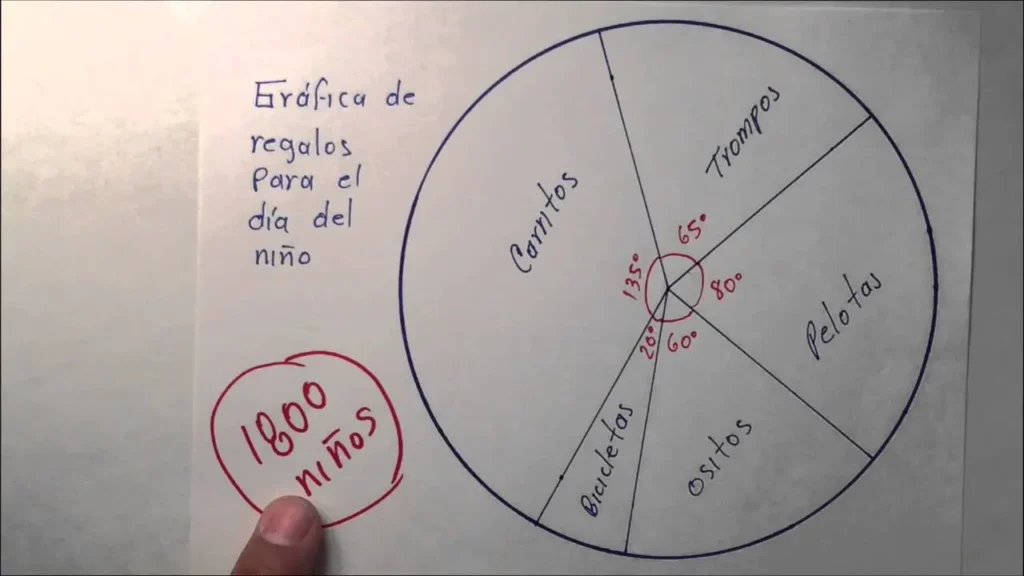 Gráfica de
regalos
Para el
día del
niño
1800
niños
Carritos
Trompos
Pelotas
Ositos
Bicicletas
135°
65°
80°
60°
20°